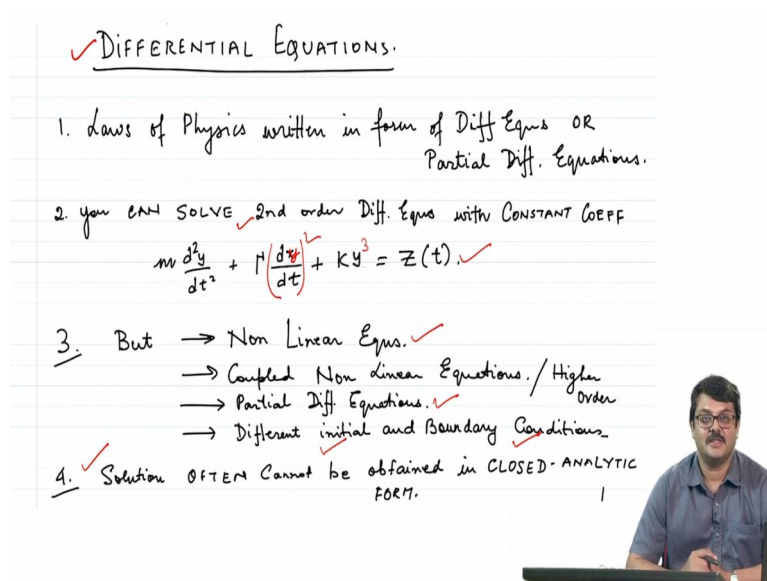 DIFFERENTIAL EQUATIONS.
1. Laws of Physics written in form of Diff Equs OR
Partial Diff. Equations.
2. you CAN SOLVE 2nd order Diff. Equs with CONSTANT COEFF
m d²y/dt² + Γ(dy/dt)² + Ky³ = Z(t).
3. But → Non Linear Equs.
→ Coupled Non Linear Equations. / Higher
order
→ Partial Diff. Equations.
→ Different initial and Boundary Conditions
4. Solution OFTEN Cannot be obtained in CLOSED-ANALYTIC
FORM.